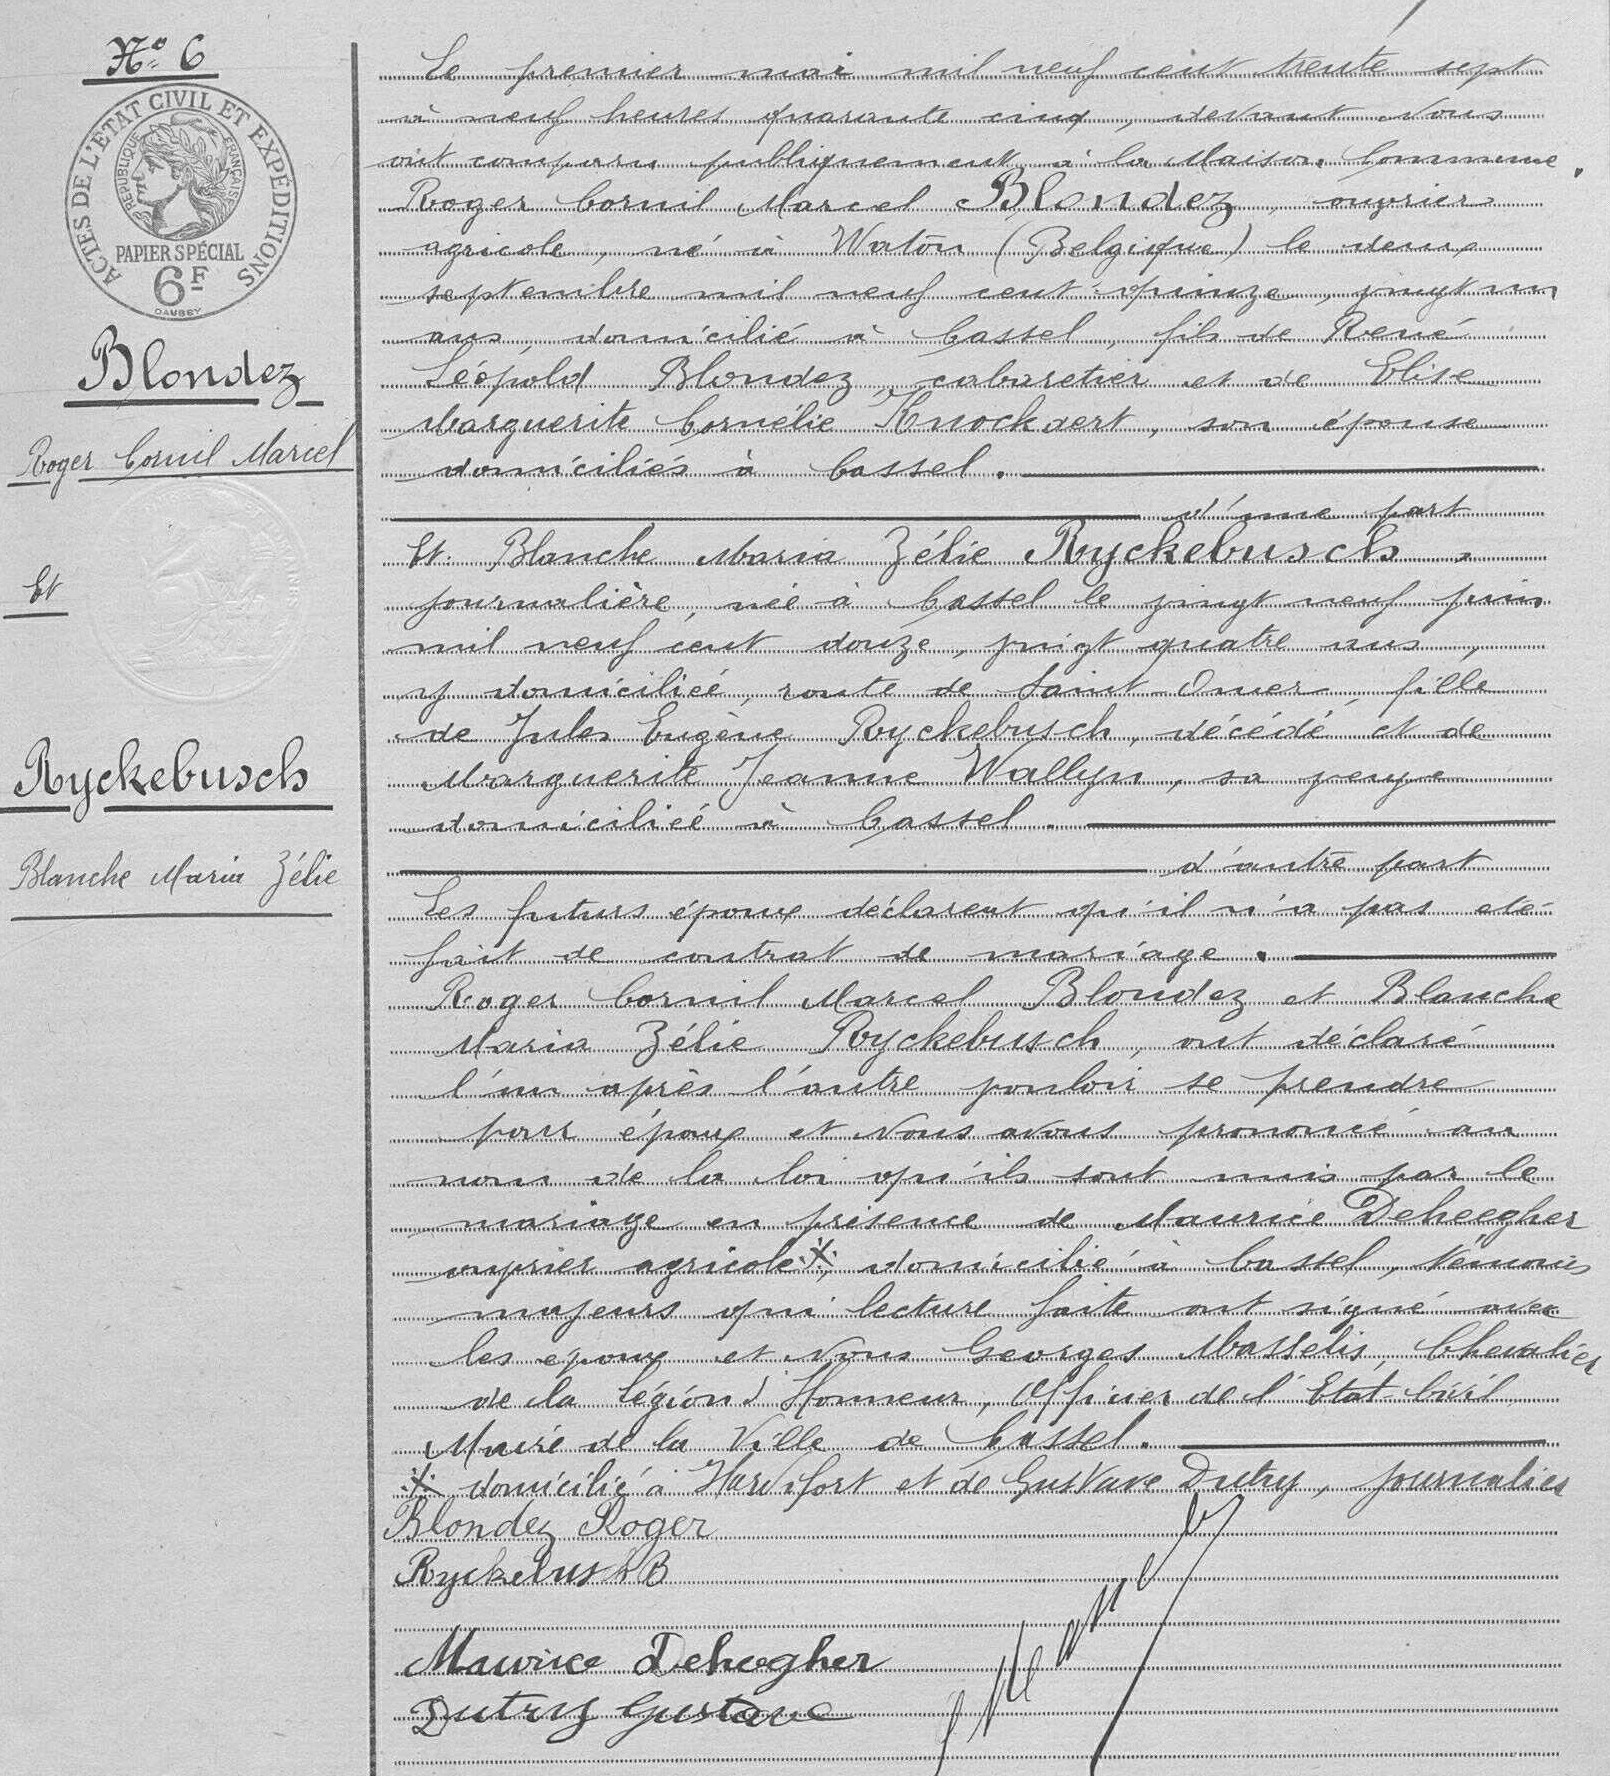 N° 6
ACTES DE L'ÉTAT CIVIL ET EXPÉDITIONS
RÉPUBLIQUE FRANÇAISE
PAPIER SPÉCIAL
6F
DAMBEY
Blondez
Roger Cornil Marcel
Et
Ryckebusch
Blanche Maria Zélie
Le premier mai mil neuf cent trente sept
à neuf heures quarante cinq, devant Nous
ont comparu publiquement à la Maison Commune,
Roger Cornil Marcel Blondez, ouvrier
agricole, né à Watou (Belgique) le deux
septembre mil neuf cent quinze, vingt un
ans, domicilié à Cassel, fils de René
Léopold Blondez, cabaretier et de Elise
Marguerite Cornélie Knockaert, son épouse
domiciliés à Cassel.
d'une part
Et Blanche Maria Zélie Ryckebusch,
journalière, née à Cassel le vingt neuf juin
mil neuf cent douze, vingt quatre ans,
y domiciliée, route de Saint-Omer, fille
de Jules Eugène Ryckebusch, décédé et de
Marguerite Jeanne Wallyn, sa veuve
domiciliée à Cassel.
d'autre part
Les futurs époux déclarent qu'il n'a pas été
fait de contrat de mariage.
Roger Cornil Marcel Blondez et Blanche
Maria Zélie Ryckebusch, ont déclaré
l'un après l'autre vouloir se prendre
pour époux et Nous avons prononcé au
nom de la loi qu'ils sont unis par le
mariage en présence de Maurice Deheegher
ouvrier agricole ※, domicilié à Cassel, témoins
majeurs qui lecture faite ont signé avec
les époux et Nous Georges Masselis, Chevalier
de la Légion d'Honneur, Officier de l'Etat-Civil
Maire de la Ville de Cassel.
※ domicilié à Hardifort et de Gustave Dutry, journalier
Blondez Roger
Ryckebusch B
Maurice Deheegher
Dutry Gustave